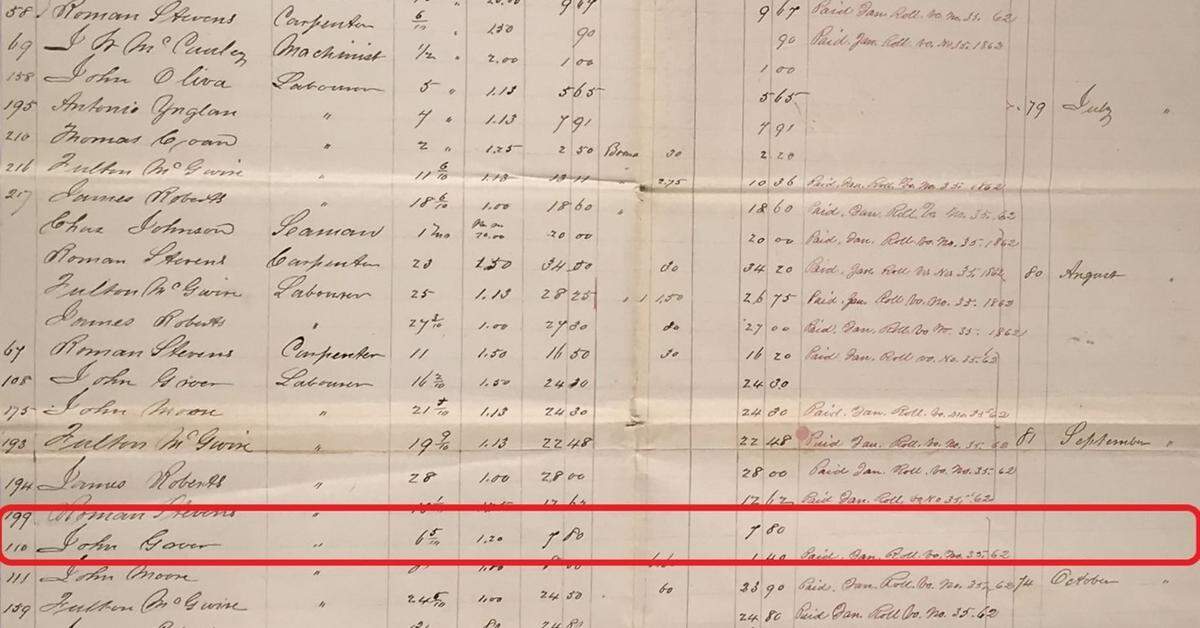 58 Roman Stevens Carpenter 6/10 " 1.50 90 90 Paid Jan. Roll. vo. No. 35. 62
69 J W McCauley Machinist 1/2 " 2.00 1 00 1 00 Paid. Jan. Roll. vo. No 35. 1862
158 John Oliva Labourer 5 " 1.13 5 65 5 65
195 Antonio Ynglan " 7 " 1.13 7 91 7 91 79 July "
210 Thomas " 2 " 1.25 2 50 30 2 20
216 Fulton McGwire " 11 6/10 1.13 13 11 " 2.75 10 36 Paid. Jan. Roll. Vo. No. 35. 1862
217 James Roberts " 18 6/10 1.00 18 60 " 18 60 Paid. Jan. Roll Vo. No. 35. 62
Chas Johnson Seaman 1 mo 20.00 20 00 20 00 Paid. Jan. Roll. Vo. No. 35. 1862
Roman Stevens Carpenter 23 1.50 34 50 30 34 20 Paid. Jan Roll Vo. No 35. 1862 80 August "
Fulton McGwire Labourer 25 1.13 28 25 " 1.50 26 75 Paid. Jan. Roll Vo. No. 35. 1862
James Roberts " 27 3/10 1.00 27 30 30 27 00 Paid. Jan. Roll Vo No. 35. 1862
67 Roman Stevens Carpenter 11 1.50 16 50 30 16 20 Paid Jan. Roll vo. No. 35. 62
108 John Labourer 16 2/10 1.50 24 30 24 30
175 John Moore " 21 5/10 1.13 24 30 24 30 Paid. Jan. Roll. vo. No 35 62
193 Fulton McGwire " 19 9/10 1.13 22 48 22 48 Paid Jan. Roll. Vo. No. 35. 81 September "
194 James Roberts " 28 1.00 28 00 28 00 Paid Jan. Roll. Vo. No. 35. 62
199 Roman Stevens " 12 62 Paid Jan. Roll. Vo No 35. 62
110 John Gover " 6 5/10 1.20 7 80 7 80
111 John Moore 1.00 1 40 Paid. Jan. Roll. Vo. No. 35. 62
159 Fulton McGwire " 24 5/10 1.00 24 50 60 23 90 Paid. Jan. Roll. Vo. No. 35. 62 74 October "
24 80 Paid Jan. Roll Vo. No. 35-62